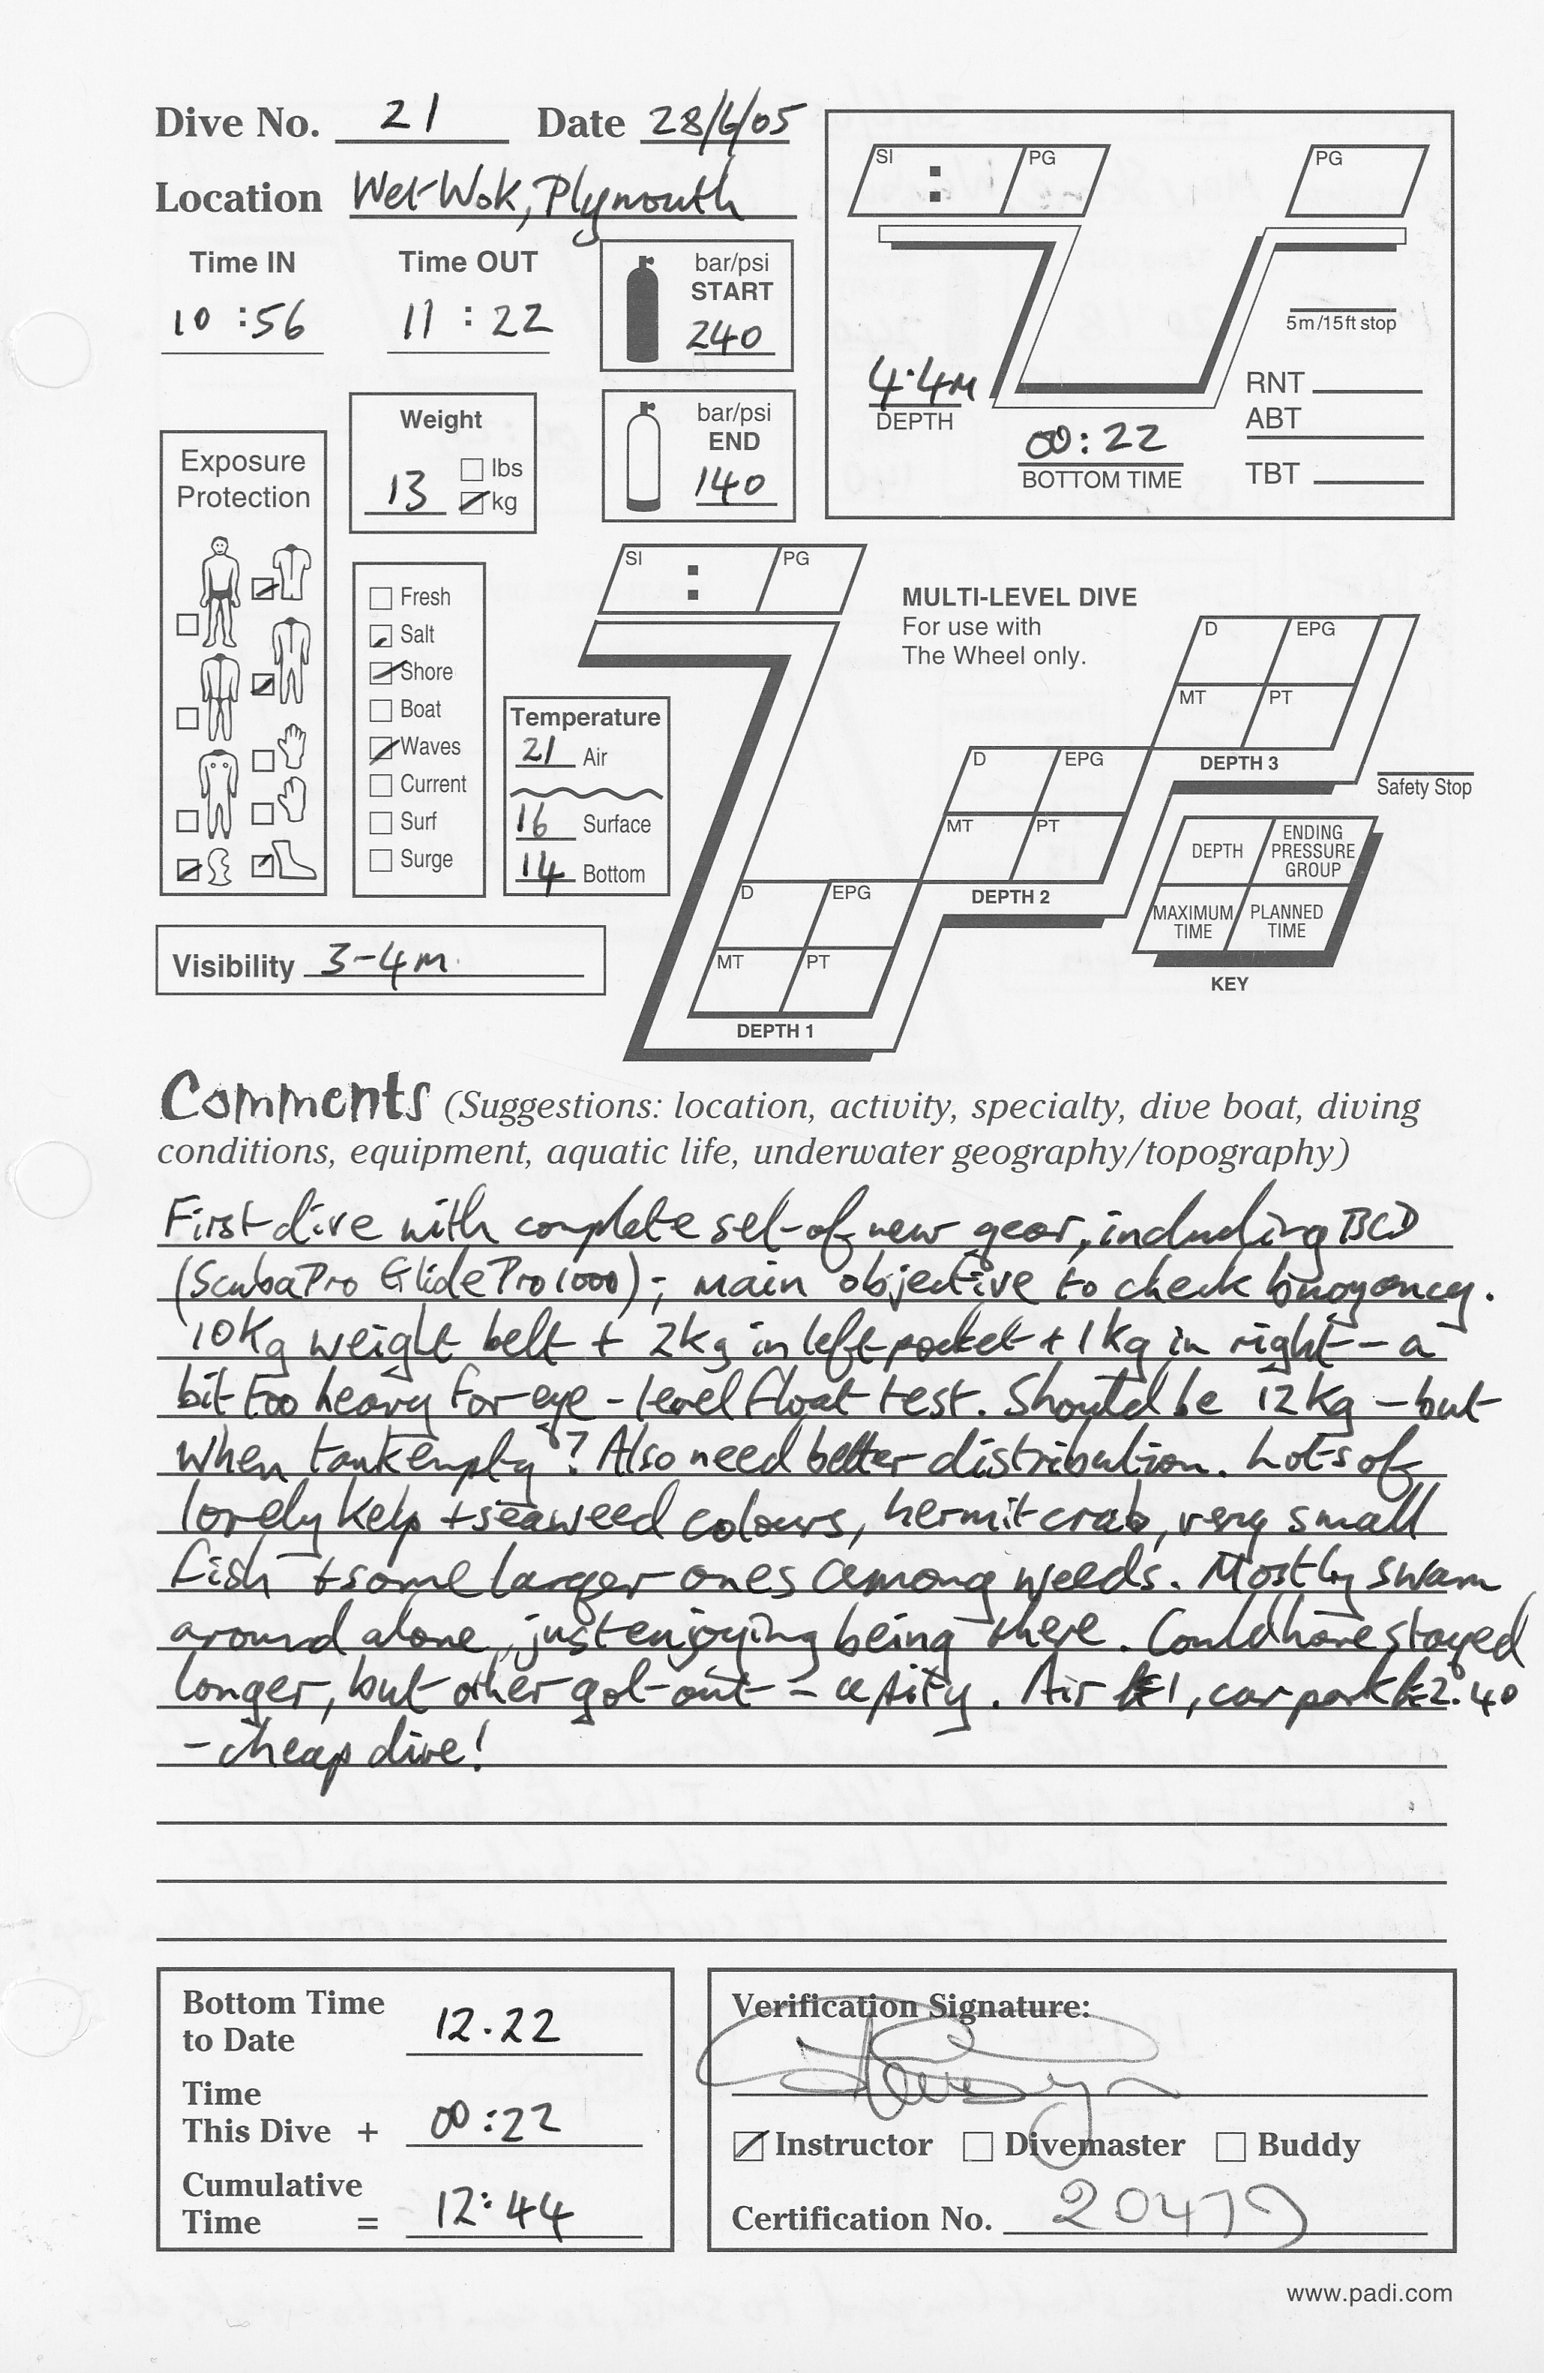 Dive No. 21 Date 28/6/05
Location Wet Wok, Plymouth
Time IN Time OUT
10 :56 11 : 22
bar/psi
START
240
bar/psi
END
140
SI : PG PG
5m/15ft stop
4.4m
DEPTH
00:22
BOTTOM TIME
RNT
ABT
TBT
Weight
13 lbs
kg
Exposure
Protection
Fresh
Salt
Shore
Boat
Waves
Current
Surf
Surge
Temperature
21 Air
16 Surface
14 Bottom
Visibility 3-4m.
SI : PG
MULTI-LEVEL DIVE
For use with
The Wheel only.
D EPG
MT PT
DEPTH 3
D EPG
MT PT
DEPTH 2
D EPG
MT PT
DEPTH 1
Safety Stop
DEPTH ENDING PRESSURE GROUP
MAXIMUM TIME PLANNED TIME
KEY
Comments (Suggestions: location, activity, specialty, dive boat, diving
conditions, equipment, aquatic life, underwater geography/topography)
First dive with complete set of new gear, including BCD
(ScubaPro GlidePro 1000); main objective to check buoyancy.
10Kg weight belt + 2kg in left pocket + 1Kg in right - a
bit too heavy for eye-level float test. Should be 12Kg - but
when tank empty? Also need better distribution. Lots of
lovely kelp + seaweed colours, hermit crab, very small
fish + some larger ones among weeds. Mostly swam
around alone, just enjoying being there. Could have stayed
longer, but other got out - a pity. Air £1, car park £2.40
- cheap dive!
Bottom Time
to Date 12.22
Time
This Dive + 00:22
Cumulative
Time = 12:44
Verification Signature:
Instructor Divemaster Buddy
Certification No. 20479
www.padi.com